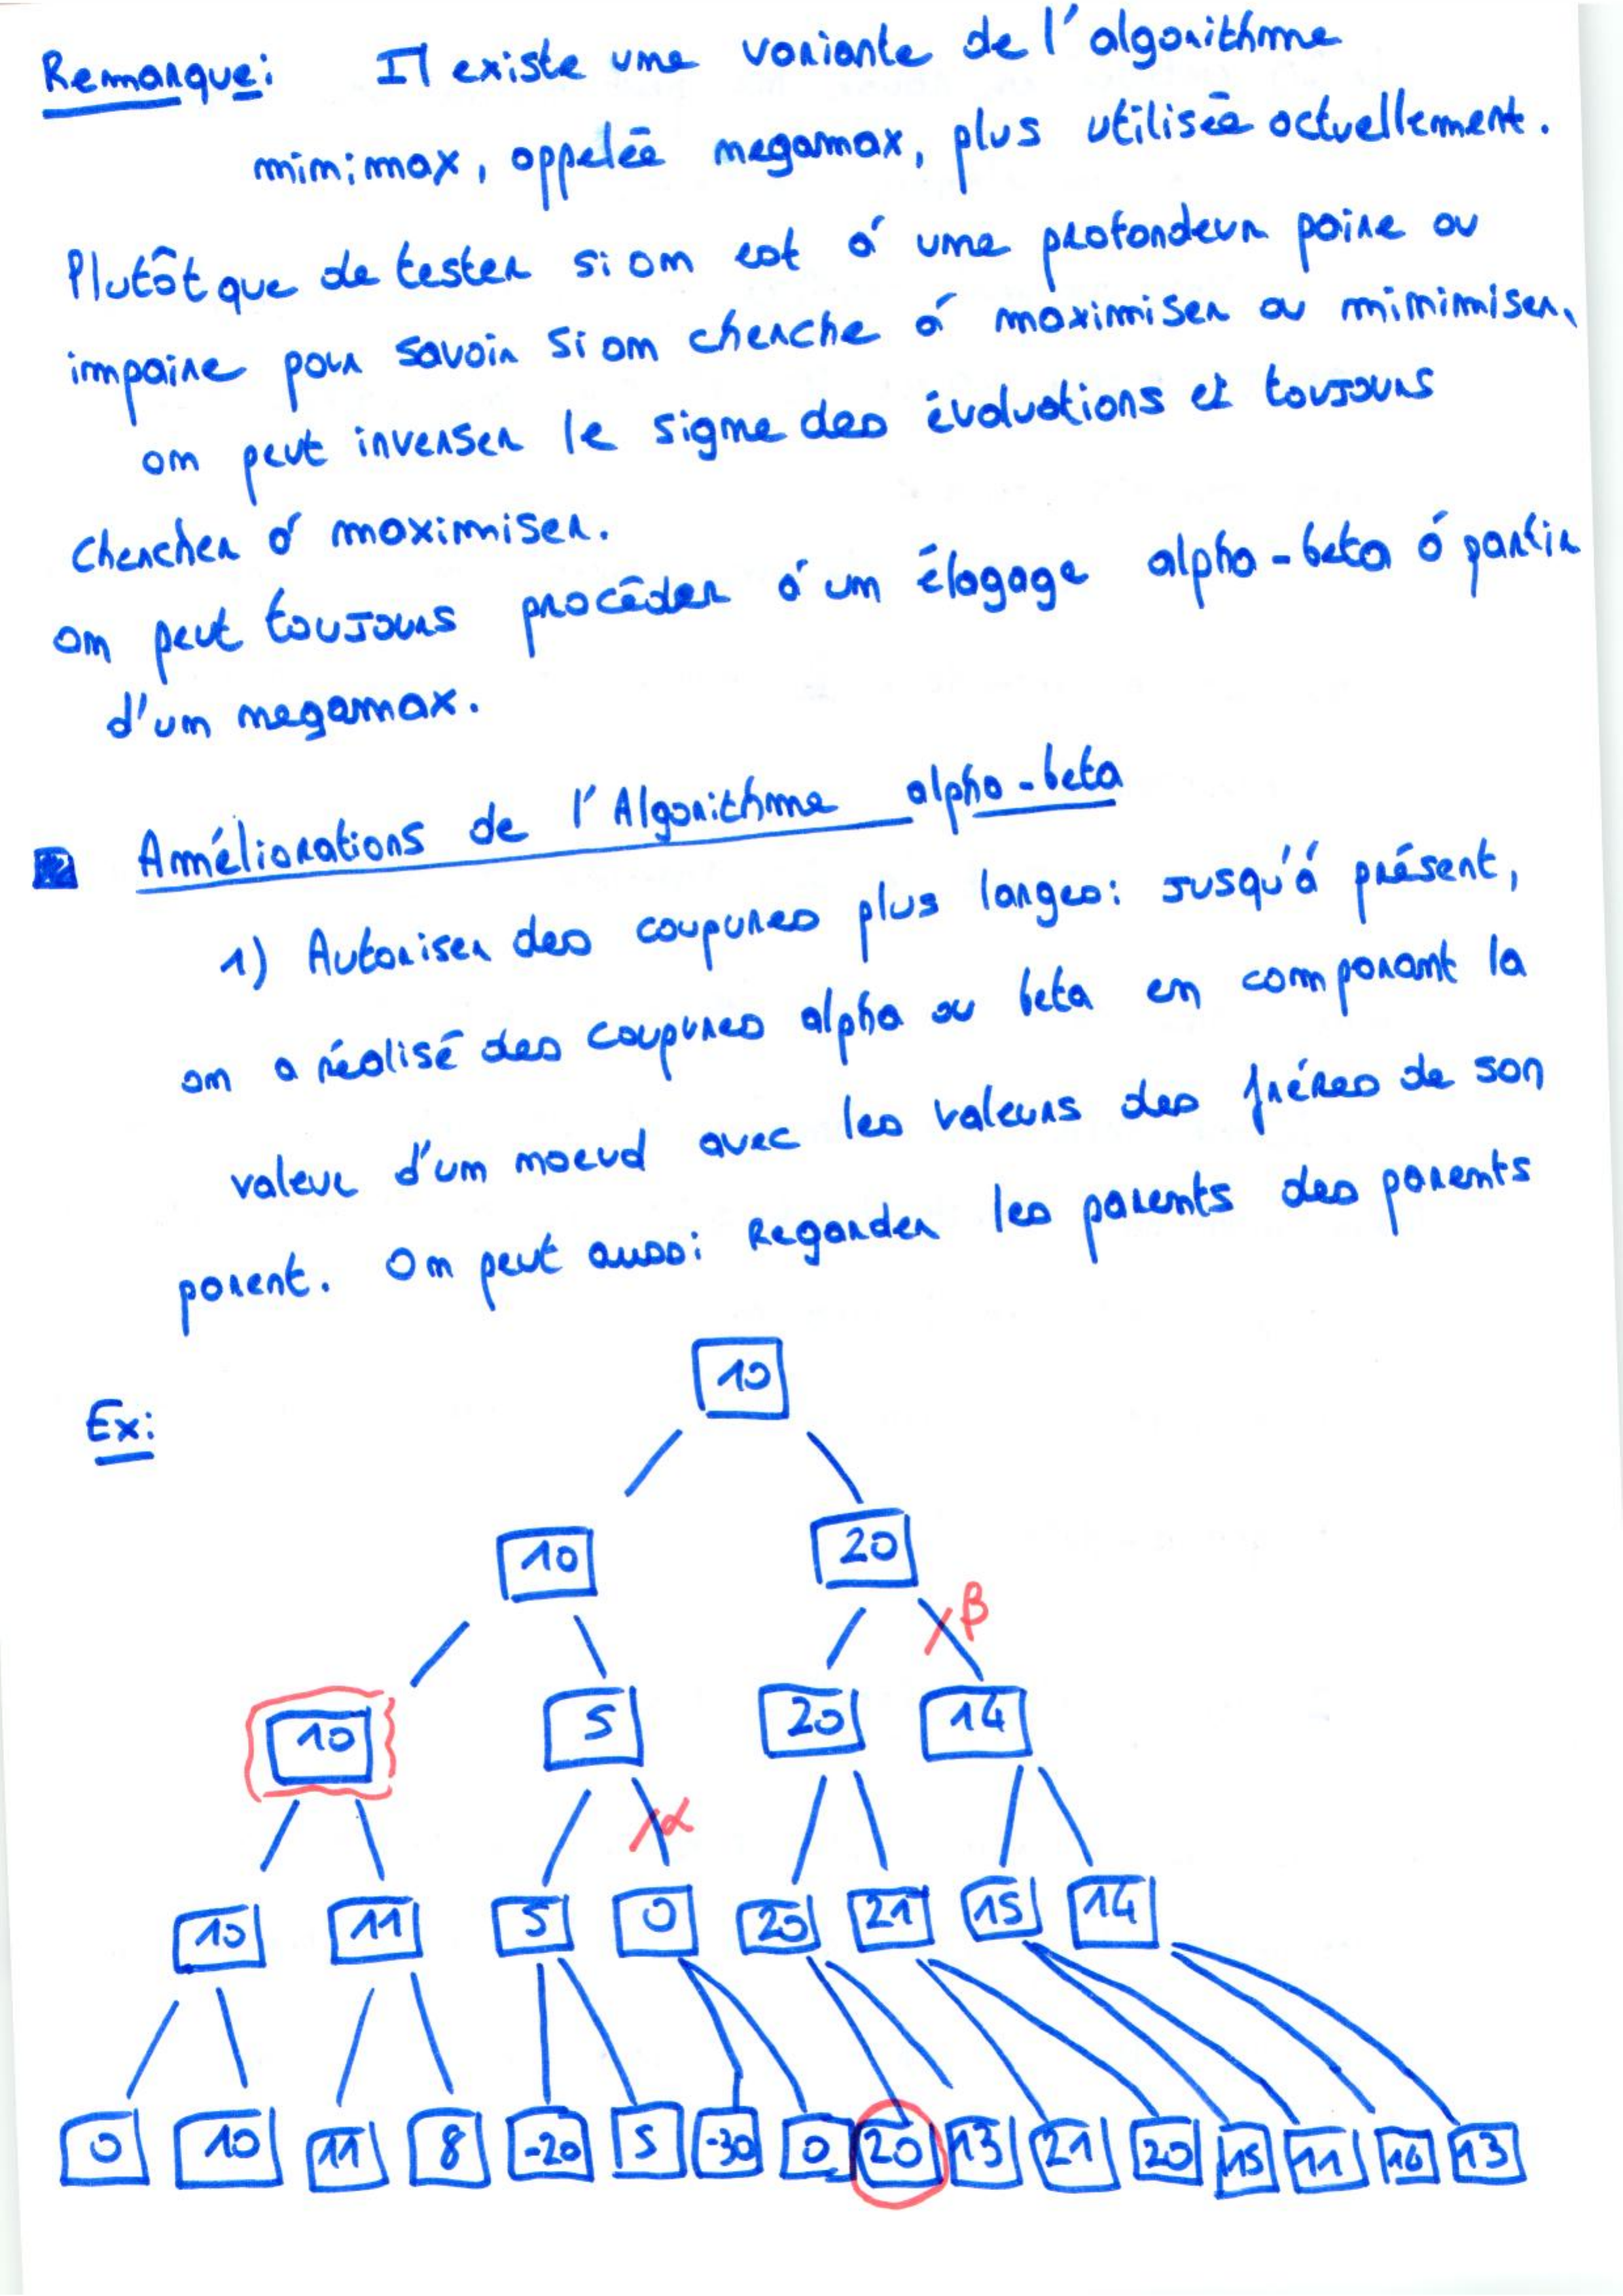 Remarque: Il existe une variante de l'algorithme
minimax, appelée negamax, plus utilisée actuellement.
Plutôt que de tester si on est à une profondeur paire ou
impaire pour savoir si on cherche à maximiser ou minimiser,
on peut inverser le signe des évaluations et toujours
chercher à maximiser.
on peut toujours procéder à un élagage alpha-beta à partir
d'un negamax.
Améliorations de l'Algorithme alpha-beta
1) Autoriser des coupures plus larges: jusqu'à présent,
on a réalisé des coupures alpha ou beta en comparant la
valeur d'un noeud avec les valeurs des frères de son
parent. On peut aussi Regarder les parents des parents
Ex:
10
10 20
β
10 5 20 14
α
10 11 5 0 20 21 15 14
0 10 11 8 -20 5 -30 0 20 13 21 20 15 11 13